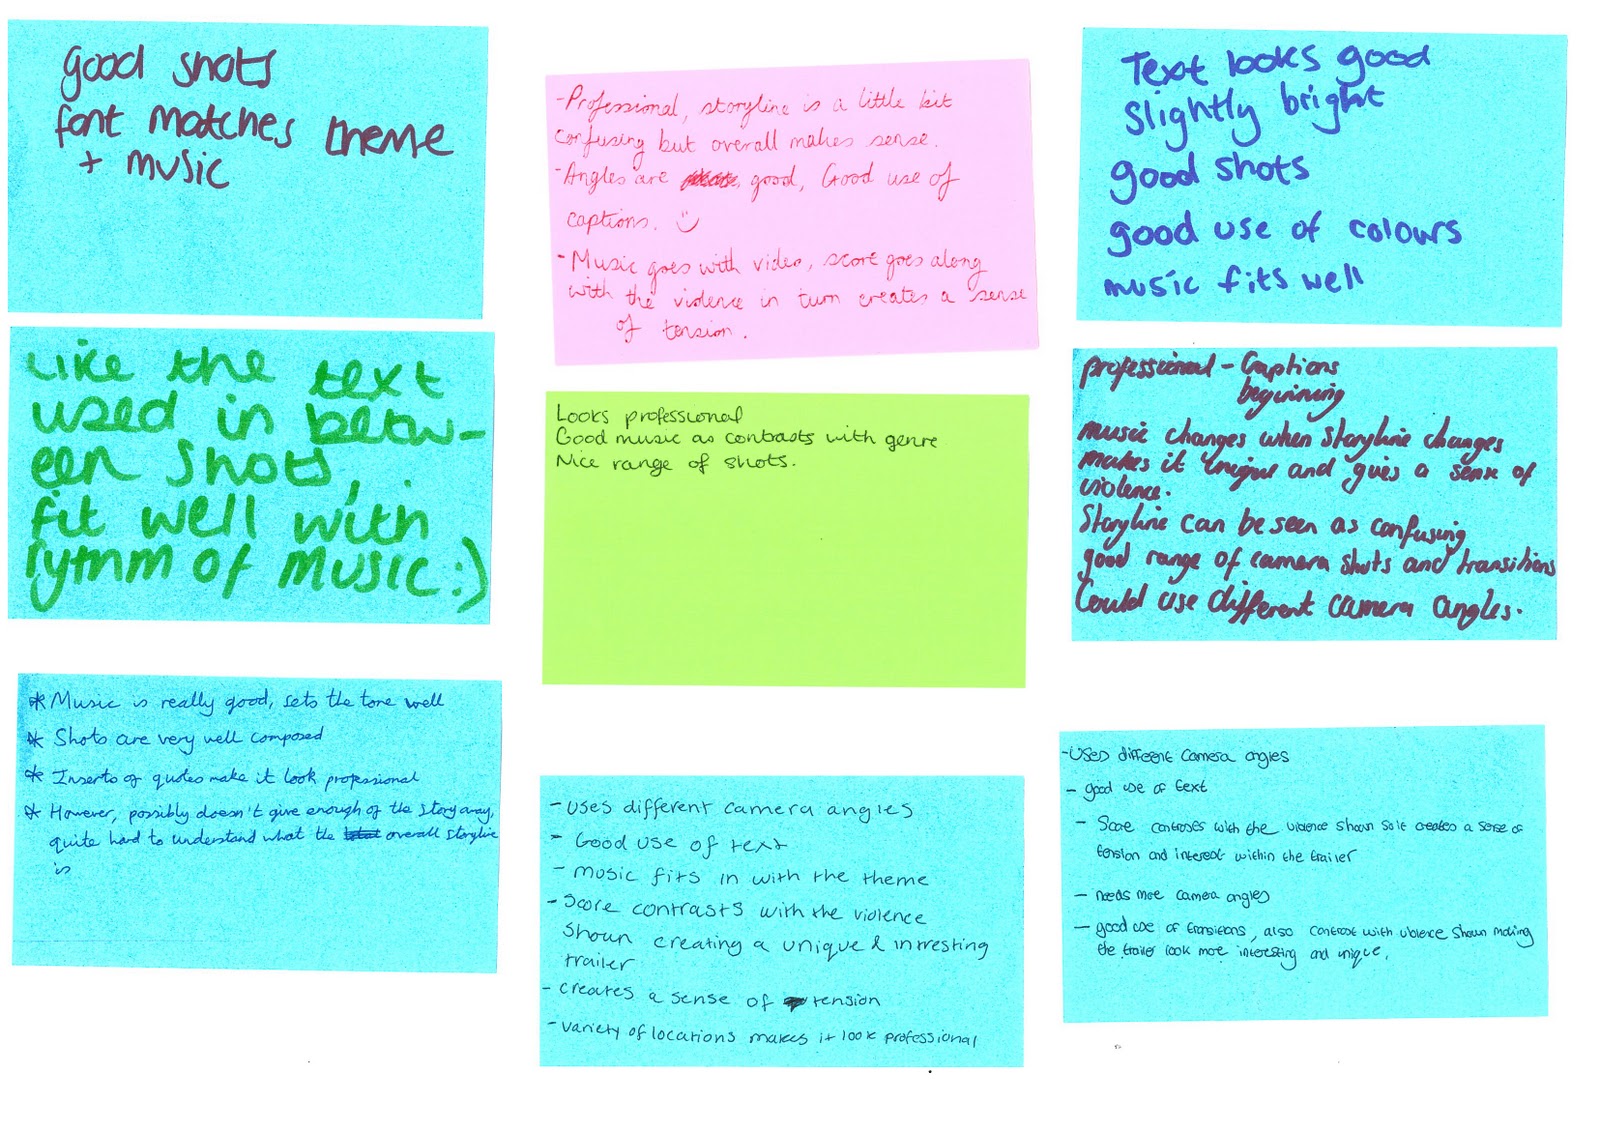 good shots
font matches theme
+ music
Like the text
used in betw-
een shots,
fit well with
rymm of music :)
* Music is really good, sets the tone well
* Shots are very well composed
* Inserts of quotes make it look professional
* However, possibly doesn't give enough of the story away,
quite hard to understand what the overall storyline
is
-Professional, storyline is a little bit
confusing but overall makes sense.
-Angles are good, Good use of
captions. :)
-Music goes with video, score goes along
with the violence in turn creates a sense
of tension.
Looks professional
Good music as contrasts with genre
Nice range of shots.
-Uses different camera angles
- Good use of text
- music fits in with the theme
-Score contrasts with the violence
shown creating a unique & intresting
trailer
- creates a sense of tension
-variety of locations makes it look professional
Text looks good
slightly bright
good shots
good use of colours
music fits well
professional - Captions
beginning
music changes when storyline changes
makes it unique and gives a sense of
violence.
Storyline can be seen as confusing
good range of camera shots and transitions
Could use different camera angles.
-Used different camera angles
- good use of text
- Score contrases with the violence shown so it creates a sense of
tension and interest within the trailer
- needs more camera angles
- good use of transitions, also contrast with violence shown making
the trailer look more interesting and unique.